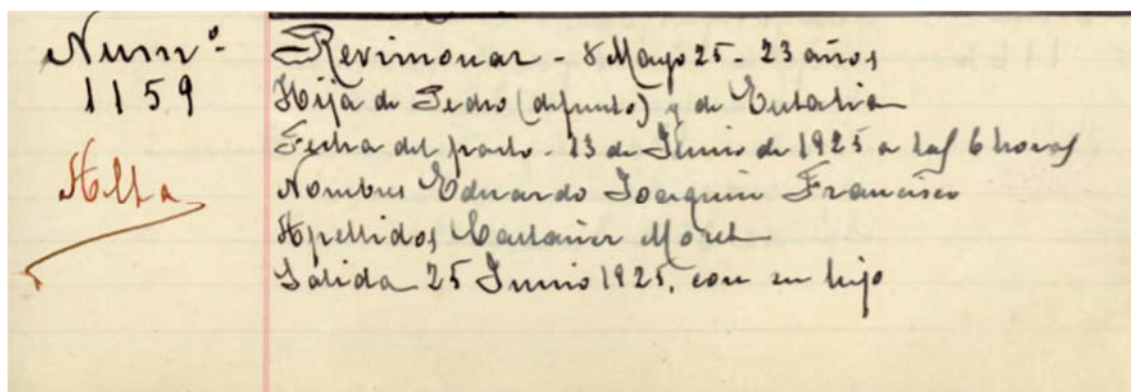 Num.º
1159
Alta
Revimonar - 8 Mayo 25 - 23 años
Hija de Pedro (difunto) y de Eulalia
Fecha del parto - 13 de Junio de 1925 a las 6 horas
Nombres Eduardo Joaquin Francisco
Apellidos Castañer Moret
Salida 25 Junio 1925, con su hijo